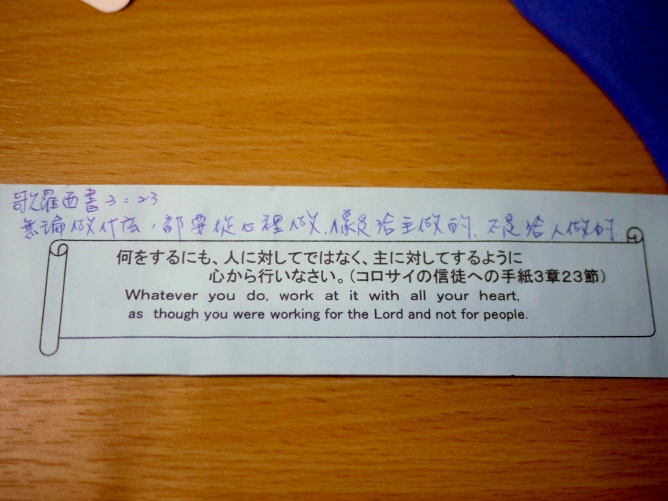 歌羅西書3:23
無論做什么,都要從心裡做,像是給主做的,不是給人做的
何をするにも、人に対してではなく、主に対してするように
心から行いなさい。(コロサイの信徒への手紙3章23節)
Whatever you do, work at it with all your heart,
as though you were working for the Lord and not for people.